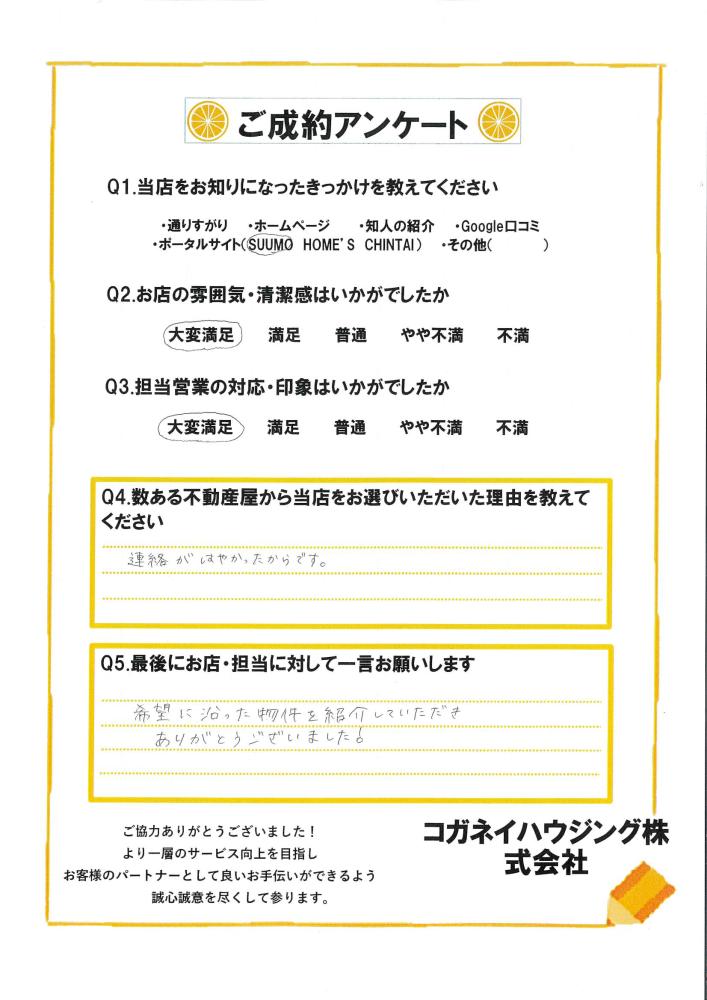 ご成約アンケート
Q1.当店をお知りになったきっかけを教えてください
・通りすがり ・ホームページ ・知人の紹介 ・Google口コミ
・ポータルサイト(SUUMO HOME'S CHINTAI) ・その他( )
Q2.お店の雰囲気・清潔感はいかがでしたか
大変満足 満足 普通 やや不満 不満
Q3.担当営業の対応・印象はいかがでしたか
大変満足 満足 普通 やや不満 不満
Q4.数ある不動産屋から当店をお選びいただいた理由を教えて
ください
連絡がはやかったからです。
Q5.最後にお店・担当に対して一言お願いします
希望に沿った物件を紹介していただき
ありがとうございました!
ご協力ありがとうございました!
より一層のサービス向上を目指し
お客様のパートナーとして良いお手伝いができるよう
誠心誠意を尽くして参ります。
コガネイハウジング株
式会社